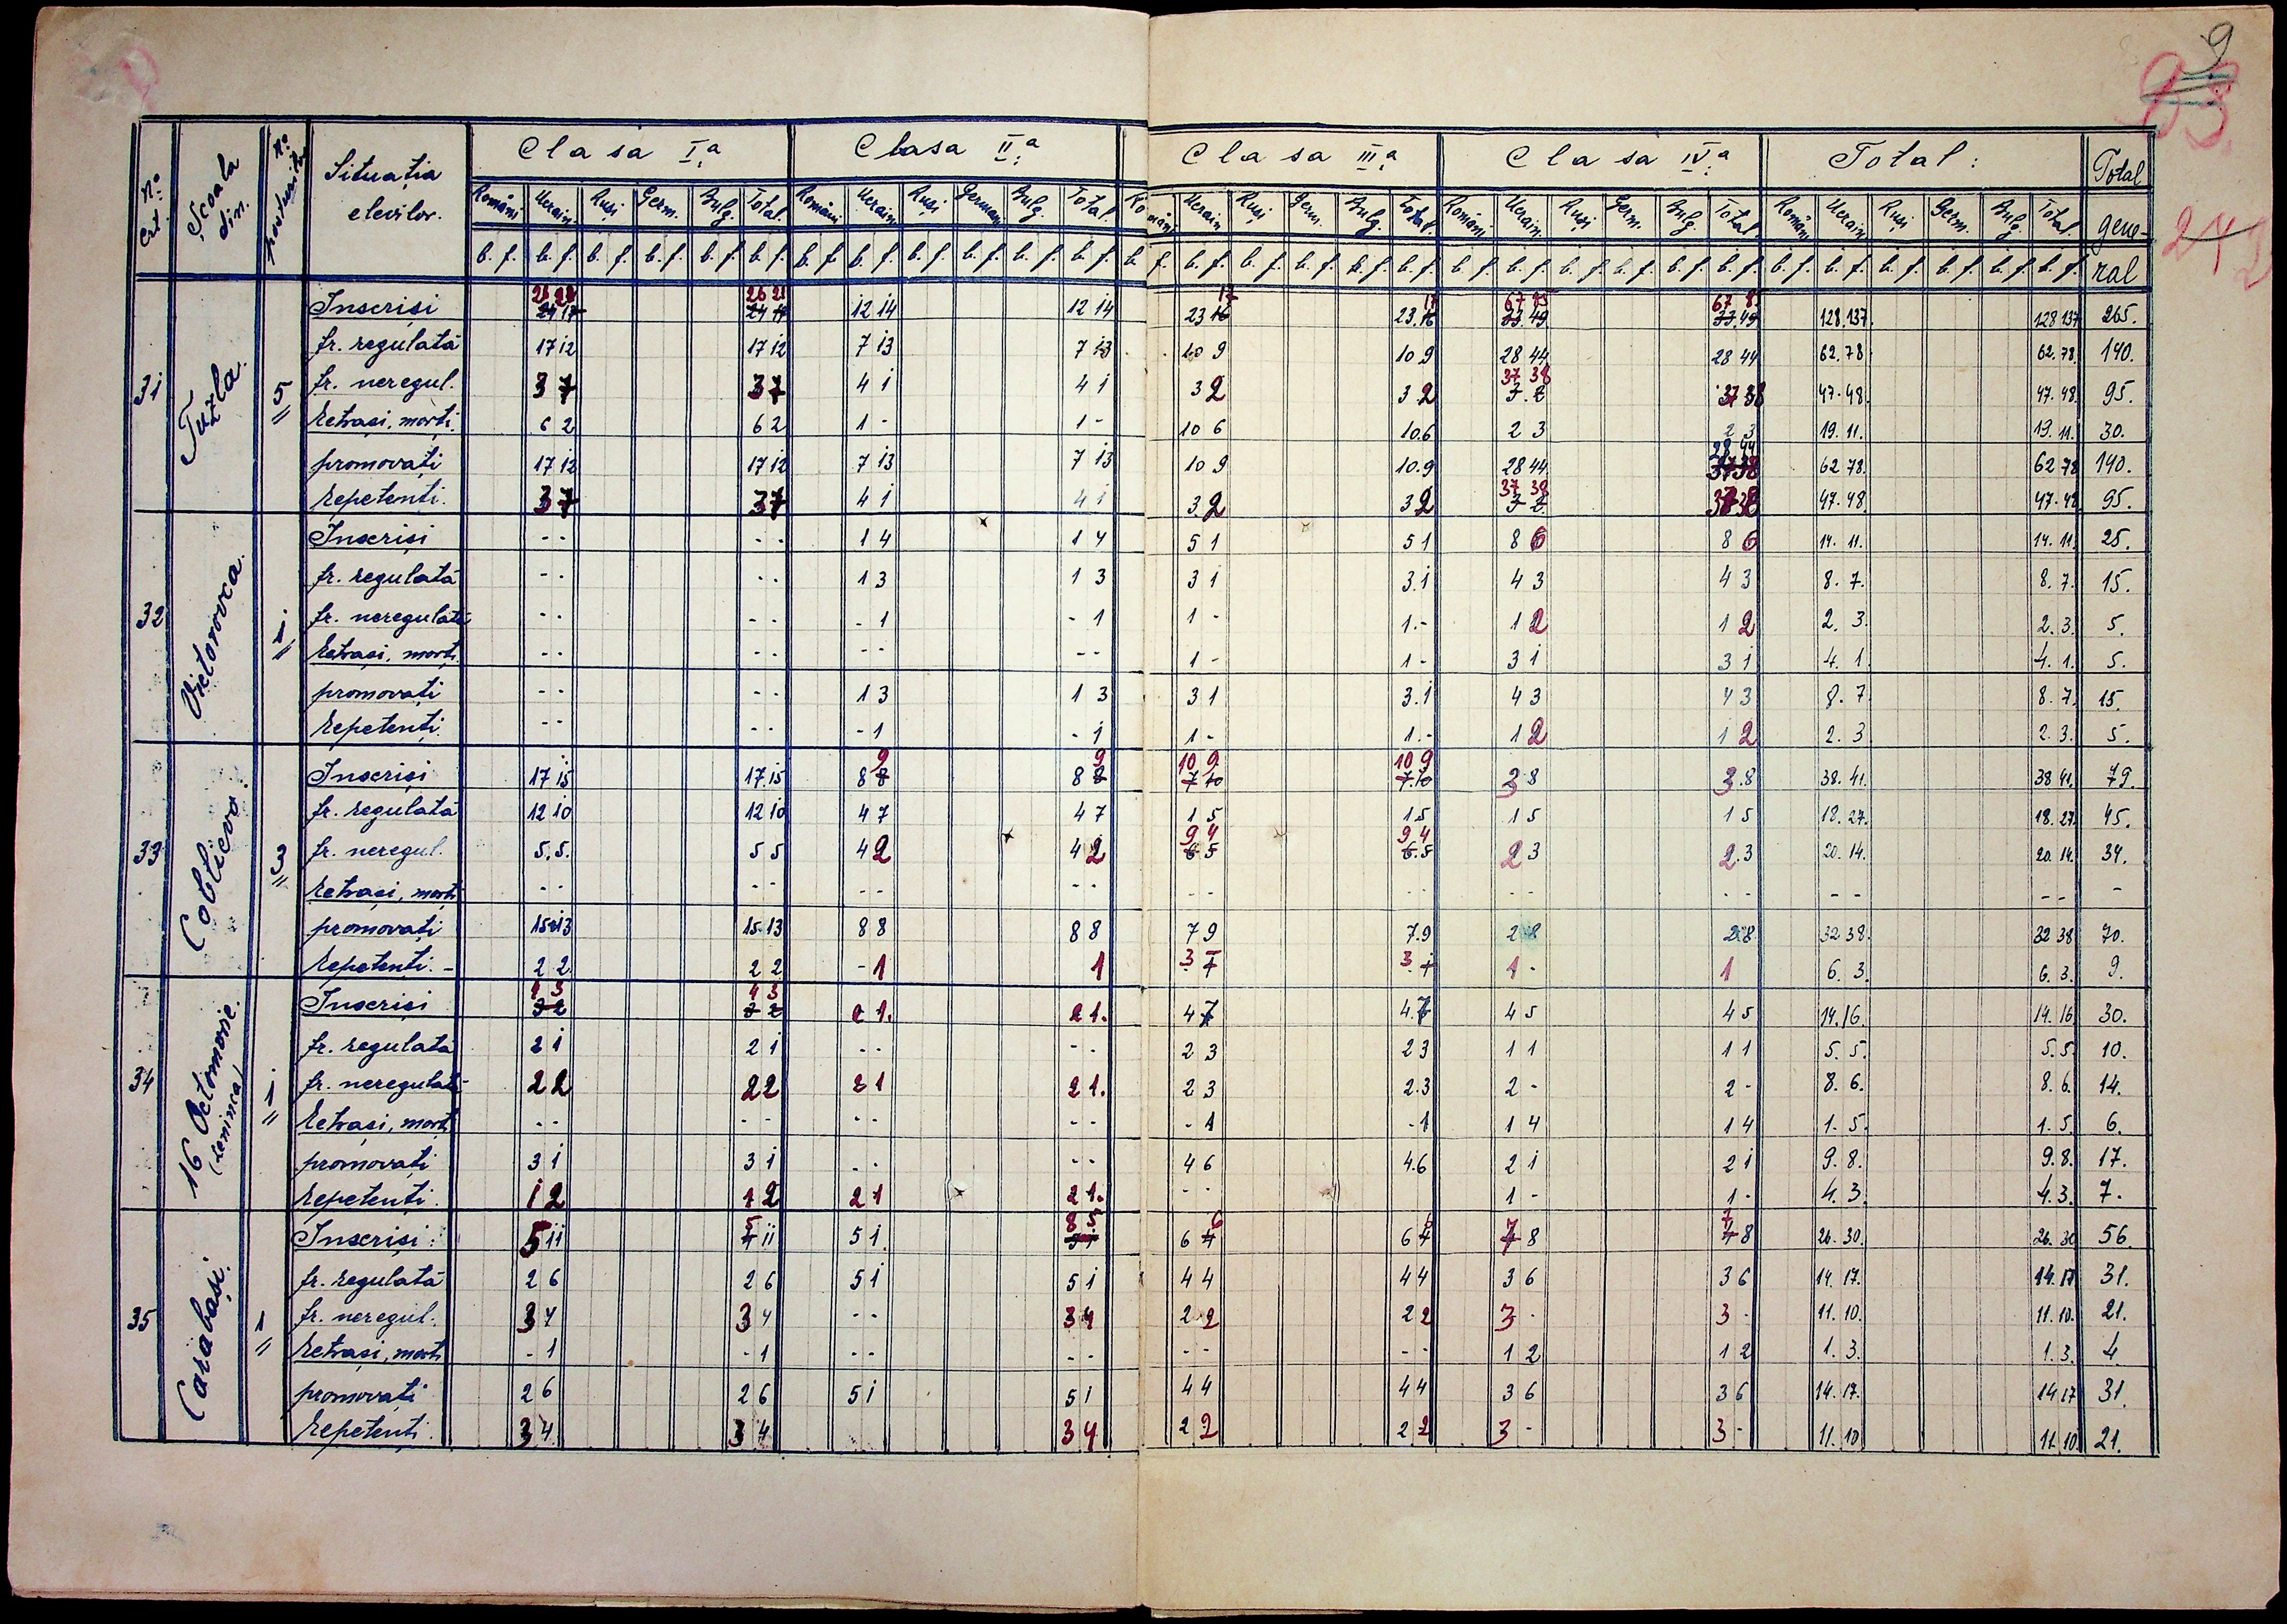 9
93
242
Nº crt. Școala din. Nº posturilor Situația elevilor. Clasa I.a Clasa II.a Clasa III.a Clasa IV.a Total: Total general
Români Ucrain. Ruși Germ. Bulg. Total Români Ucrain. Ruși Germani Bulg. Total Români Ucrain Ruși Germ. Bulg. Total Români Ucrain. Ruși Germ. Bulg. Total Români Ucrain Ruși Germ. Bulg. Total
b. f. b. f. b. f. b. f. b. f. b. f. b. f. b. f. b. f. b. f. b. f. b. f. b. f. b. f. b. f. b. f. b. f. b. f. b. f. b. f. b. f. b. f. b. f. b. f. b. f. b. f. b. f. b. f. b. f. b. f.
31 Tuzla. 5
Inscriși 26 21 24 17 26 21 24 17 12 14 12 14 23 16 17 23.16 17 67 85 33.49 67 85 33.49 128.137. 128 137 265.
fr. regulată 17 12 17 12 7 13 7 13 10 9 10 9 28 44 28 44 62.78. 62.78. 140.
fr. neregul. 3 7 3 7 4 1 4 1 3 2 3 2 37 38 3.2 37 38 47.48. 47.48. 95.
Retrași, morți. 6 2 6 2 1 - 1 - 10 6 10.6 2 3 2 3 19.11. 19.11. 30.
promovați 17 12 17 12 7 13 7 13 10 9 10.9 28 44 28 44 37 38 62 78. 62 78 140.
Repetenti. 3 7 3 7 4 1 4 1 3.2 3 2 37 38 3 2 37 38 47.48. 47.48 95.
32 Victorovca. 1
Inscriși - - - - 1 4 1 4 5 1 5 1 8 6 8 6 14.11. 14.11. 25.
fr. regulată - - - - 1 3 1 3 3 1 3.1 4 3 4 3 8.7. 8.7. 15.
fr. neregulată - - - - - 1 - 1 1 - 1.- 1 2 1 2 2.3. 2.3. 5.
Retrași, morți. - - - - - - - - 1 - 1 - 3 1 3 1 4.1. 4.1. 5.
promovați - - - - 1 3 1 3 3 1 3.1 4 3 4 3 8.7. 8.7. 15.
Repetenți. - - - - - 1 - 1 1 - 1.- 1 2 1 2 2.3. 2.3. 5.
33 Coblievo. 3
Inscriși 17 15 17.15 8 8 9 8 8 9 10 9 7 10 10 9 7.10 3 8 3.8 38.41. 38 41. 79.
fr. regulată 12 10 12 10 4 7 4 7 1 5 1.5 1 5 1 5 18.27. 18.27. 45.
fr. neregul. 5.5. 5 5 4 2 4 2 9 4 6 5 9 4 6.5 2 3 2.3 20.14. 20.14. 34.
Retrași, morți - - - - - - - - - - - - - - - - - - - - -
promovați 15 13 15.13 8 8 8 8 7 9 7.9 2 8 2 8 32 38. 32 38 70.
Repetenti. - 2 2 2 2 - 1 1 3 1 3 1 1 - 1 6.3. 6.3. 9.
34 16 Octomvrie. (Leninca) 1
Inscriși 4 3 3 2 4 3 3 2 2 1. 2 1. 4 7 4.7 4 5 4 5 14.16. 14.16 30.
fr. regulată 2 1 2 1 - - - - 2 3 2 3 1 1 1 1 5.5. 5.5. 10.
fr. neregulată 2 2 2 2 2 1 2 1. 2 3 2.3 2 - 2 - 8.6. 8.6. 14.
Retrași, morți - - - - - - - - - 1 - 1 1 4 1 4 1.5. 1.5. 6.
promovați 3 1 3 1 - - - - 4 6 4.6 2 1 2 1 9.8. 9.8. 17.
Repetenți. 1 2 1 2 2 1 2 1. - - 1 - 1 - 4.3. 4.3. 7.
35 Carabași. 1
Inscriși: 5 11 5 4 11 5 1 8 5 5 1 6 4 6 6 4 6 7 8 7 4 8 26.30. 26.30 56.
fr. regulată 2 6 2 6 5 1 5 1 4 4 4 4 3 6 3 6 14.17. 14.17 31.
fr. neregul. 3 4 3 4 - - 3 4 2 2 2 2 3 - 3 - 11.10. 11.10. 21.
Retrași, morți - 1 - 1 - - - - - - - - 1 2 1 2 1.3. 1.3. 4
promovați 2 6 2 6 5 1 5 1 4 4 4 4 3 6 3 6 14.17. 14 17 31.
Repetenți. 3 4 3 4 3 4 2 2 2 2 3 - 3 - 11.10 11.10. 21.